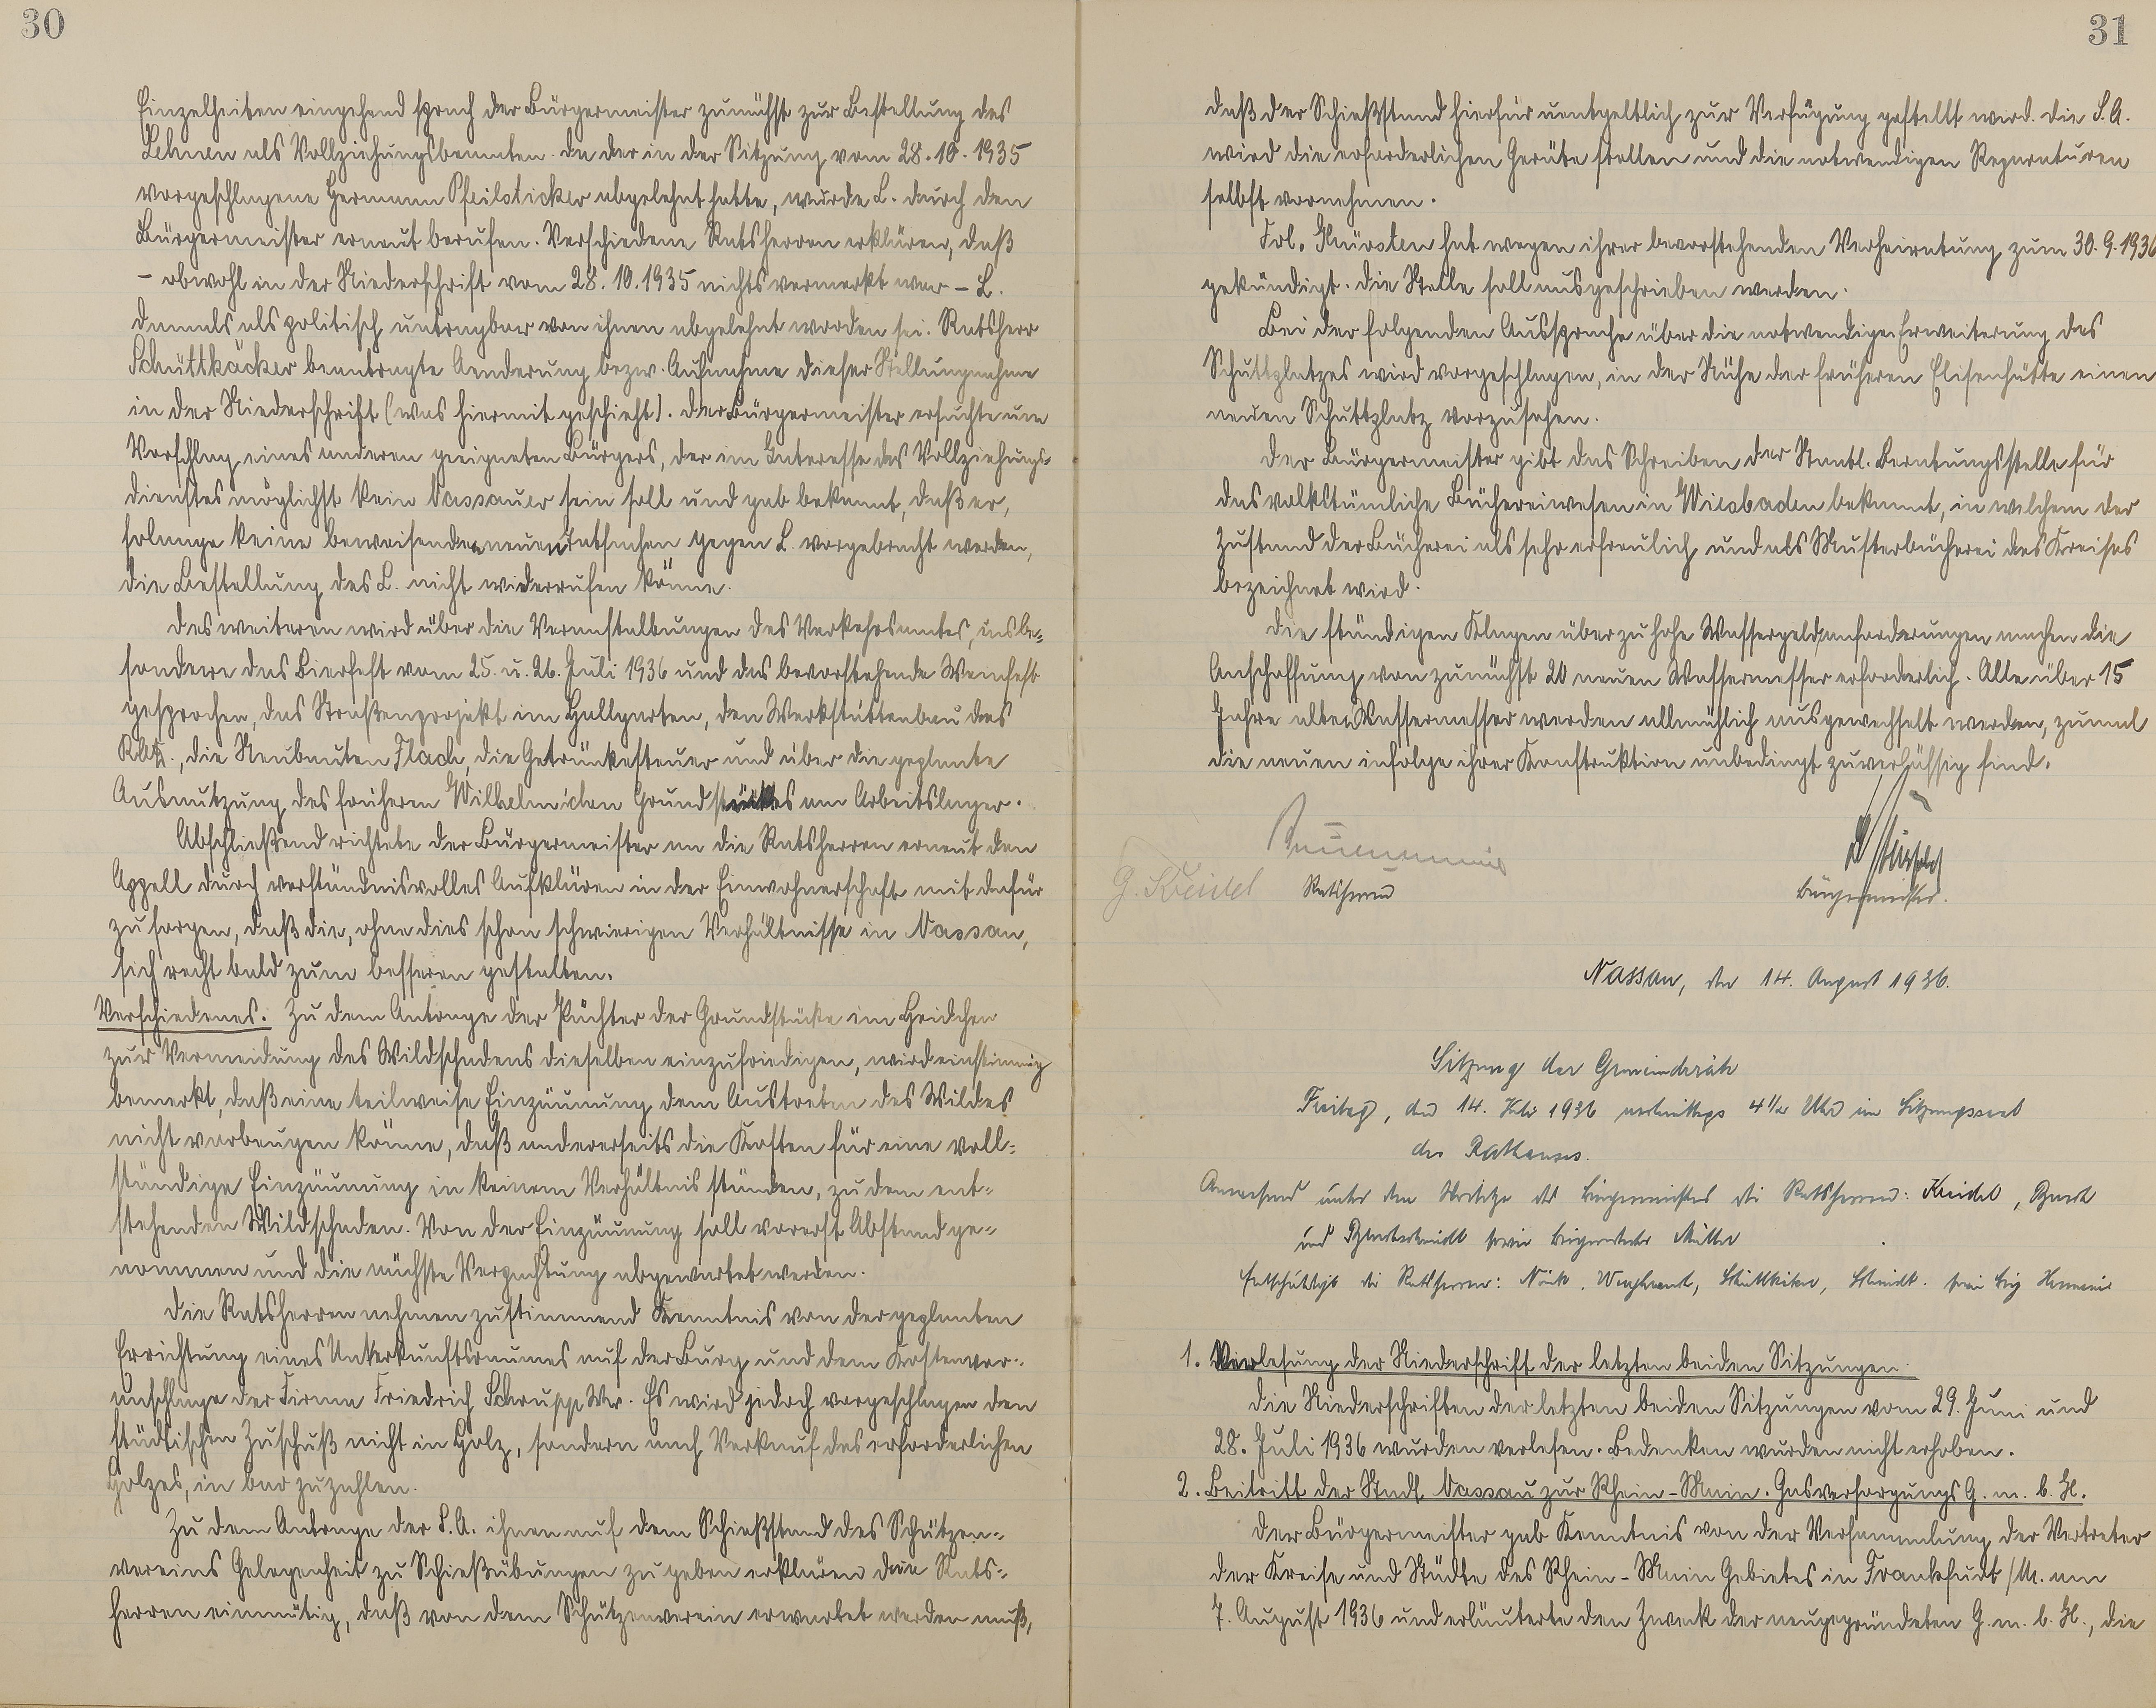 30
Einzelheiten eingehend sprach der Bürgermeister zunächst zur Bestellung des
Lehnen als Vollziehungsbeamten. Da der in der Sitzung vom 28.10.1935
vorgeschlagene Hermann Pfeilsticker abgelehnt hatte, wurde L. durch den
Bürgermeister erneut berufen. Verschiedene Ratsherren erklären, daß
- obwohl in der Niederschrift vom 28.10.1935 nichts vermerkt war - L.
damals als politisch untragbar von ihnen abgelehnt worden sei. Ratsherr
Schüttkäcker beantragte Aenderung bezw. Aufnahme dieser Stellungnahme
in der Niederschrift (was hiermit geschieht). Der Bürgermeister ersuchte um
Vorschlag eines anderen geeigneten Bürgers, der im Interesse des Vollziehungs-
dienstes möglichst kein Nassauer sein soll und gab bekannt, daß er,
solange keine beweisenden neuen Tatsachen gegen L. vorgebracht werden,
die Bestellung des L. nicht widerrufen könne.
Des weiteren wird über die Veranstaltungen des Verkehrsamtes, insbe-
sondere das Bierfest vom 25. u. 26. Juli 1936 und das bevorstehende Weinfest
gesprochen, das Straßenprojekt im Hallgarten, den Werkstättenbau des
die Neubauten Flach, die Getränkesteuer und über die geplante
Ausnutzung des früheren Wilhelmi'chen Grundstückes am Arbeitslager.
Abschließend richtete der Bürgermeister an die Ratsherren erneut den
Appell durch verständnisvolles Aufklären in der Einwohnerschaft mit dafür
zu sorgen, daß die, ohne dies schon schwierigen Verhältnisse in Nassau,
sich recht bald zum besseren gestalten.
Verschiedenes. Zu dem Antrage der Pächter der Grundstücke im Heidchen
zur Vermeidung des Wildschadens dieselben einzufriedigen, wird einstimmig
bemerkt, daß eine teilweise Einzäunung dem Austreten des Wildes
nicht vorbeugen könne, daß andererseits die Kosten für eine voll-
ständige Einzäunung in keinem Verhältnis ständen, zu dem ent-
stehenden Wildschaden. Von der Einzäunung soll vorerst Abstand ge-
nommen und die nächste Verpachtung abgewartet werden.
Die Ratsherren nehmen zustimmend Kenntnis von der geplanten
Errichtung eines Unterkunftsraumes auf der Burg und dem Kostenvor-
anschlage der Firma Friedrich Schrupp Ww. Es wird jedoch vorgeschlagen den
städtischen Zuschuß nicht in Holz, sondern nach Verkauf des erforderlichen
Holzes, in bar zuzahlen.
Zu dem Antrage der S.A. ihnen auf dem Schießstand des Schützen-
vereins Gelegenheit zu Schießübungen zu geben erklären die Rats-
herren einmütig, daß von dem Schützenverein erwartet werden muß,
31
daß der Schießstand hierfür unentgeltlich zur Verfügung gestellt wird. Die S.A.
wird die erforderlichen Geräte stellen und die notwendigen Reparaturen
selbst vornehmen.
Frl. hat wegen ihrer bevorstehenden Verheiratung zum 30.9.1936
gekündigt. Die Stelle soll ausgeschrieben werden.
Bei der folgenden Aussprache über die notwendige Erweiterung des
Schuttplatzes wird vorgeschlagen, in der Nähe der früheren Elisenhütte einen
neuen Schuttplatz vorzusehen.
Der Bürgermeister gibt das Schreiben der Staatl. Beratungsstelle für
das volkstümliche Büchereiwesen in Wiesbaden bekannt, in welchem der
Zustand der Bücherei als sehr erfreulich und als Musterbücherei des Kreises
bezeichnet wird.
Die ständigen Klagen über zu hohe Wassergeldanforderungen machen die
Anschaffung von zunächst 20 neuen Wassermesser erforderlich. Alle über 15
Jahre alten Wassermesser werden allmählich ausgewechselt werden, zumal
die neuen infolge ihrer Konstruktion unbedingt zuverlässig sind.
G. Keidel Ratsherren
Bürgermeister.
Nassau, den 14. August 1936.
Sitzung der Gemeinderäte
Freitag, den 14. 1936 nachmittags 4 1/2 Uhr im Sitzungssaal
des Rathauses.
Anwesend unter dem Vorsitze des Bürgermeisters die Ratsherren: Keidel,
und sowie Beigeordneter Müller
Entschuldigt die Ratsherren: Schüttkäcker, Schmidt. sowie Beig.
1. Verlesung der Niederschrift der letzten beiden Sitzungen.
Die Niederschriften der letzten beiden Sitzungen vom 29. Juni und
28. Juli 1936 wurden verlesen. Bedenken wurden nicht erhoben.
2. Beitritt der Stadt Nassau zur Rhein-Main. Gasversorgungs G.m.b.H.
Der Bürgermeister gab Kenntnis von der Versammlung der Vertreter
der Kreise und Städte des Rhein-Main Gebietes in Frankfurt/M. am
7. August 1936 und erläuterte den Zweck der neugegründeten G.m.b.H., die